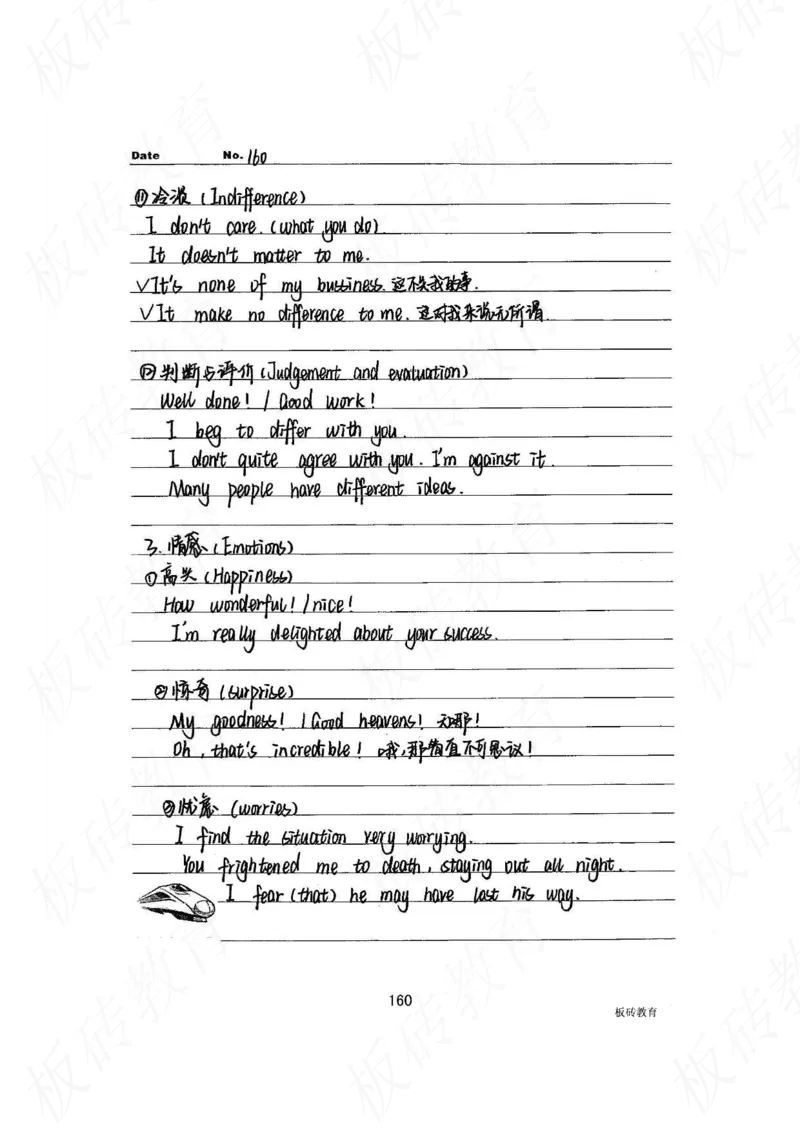 Date No. 160
⑪冷漠 (Indifference)
I don't care. (what you do)
It doesn't matter to me.
✓It's none of my bussiness. 这不关我的事.
✓It make no difference to me. 这对我来说无所谓.
⑫判断与评价 (Judgement and evatuation)
Well done! / Good work!
I beg to differ with you.
I don't quite agree with you. I'm against it.
Many people have different ideas.
3. 情感 (Emotions)
①高兴 (Happiness)
How wonderful! / nice!
I'm really delighted about your success.
②惊奇 (surprise)
My goodness! / Good heavens! 天哪!
Oh, that's incredible! 哦,那简直不可思议!
③忧虑 (worries)
I find the situation very worying.
You frightened me to death, staying out all night.
I fear (that) he may have lost his way.
160
板砖教育